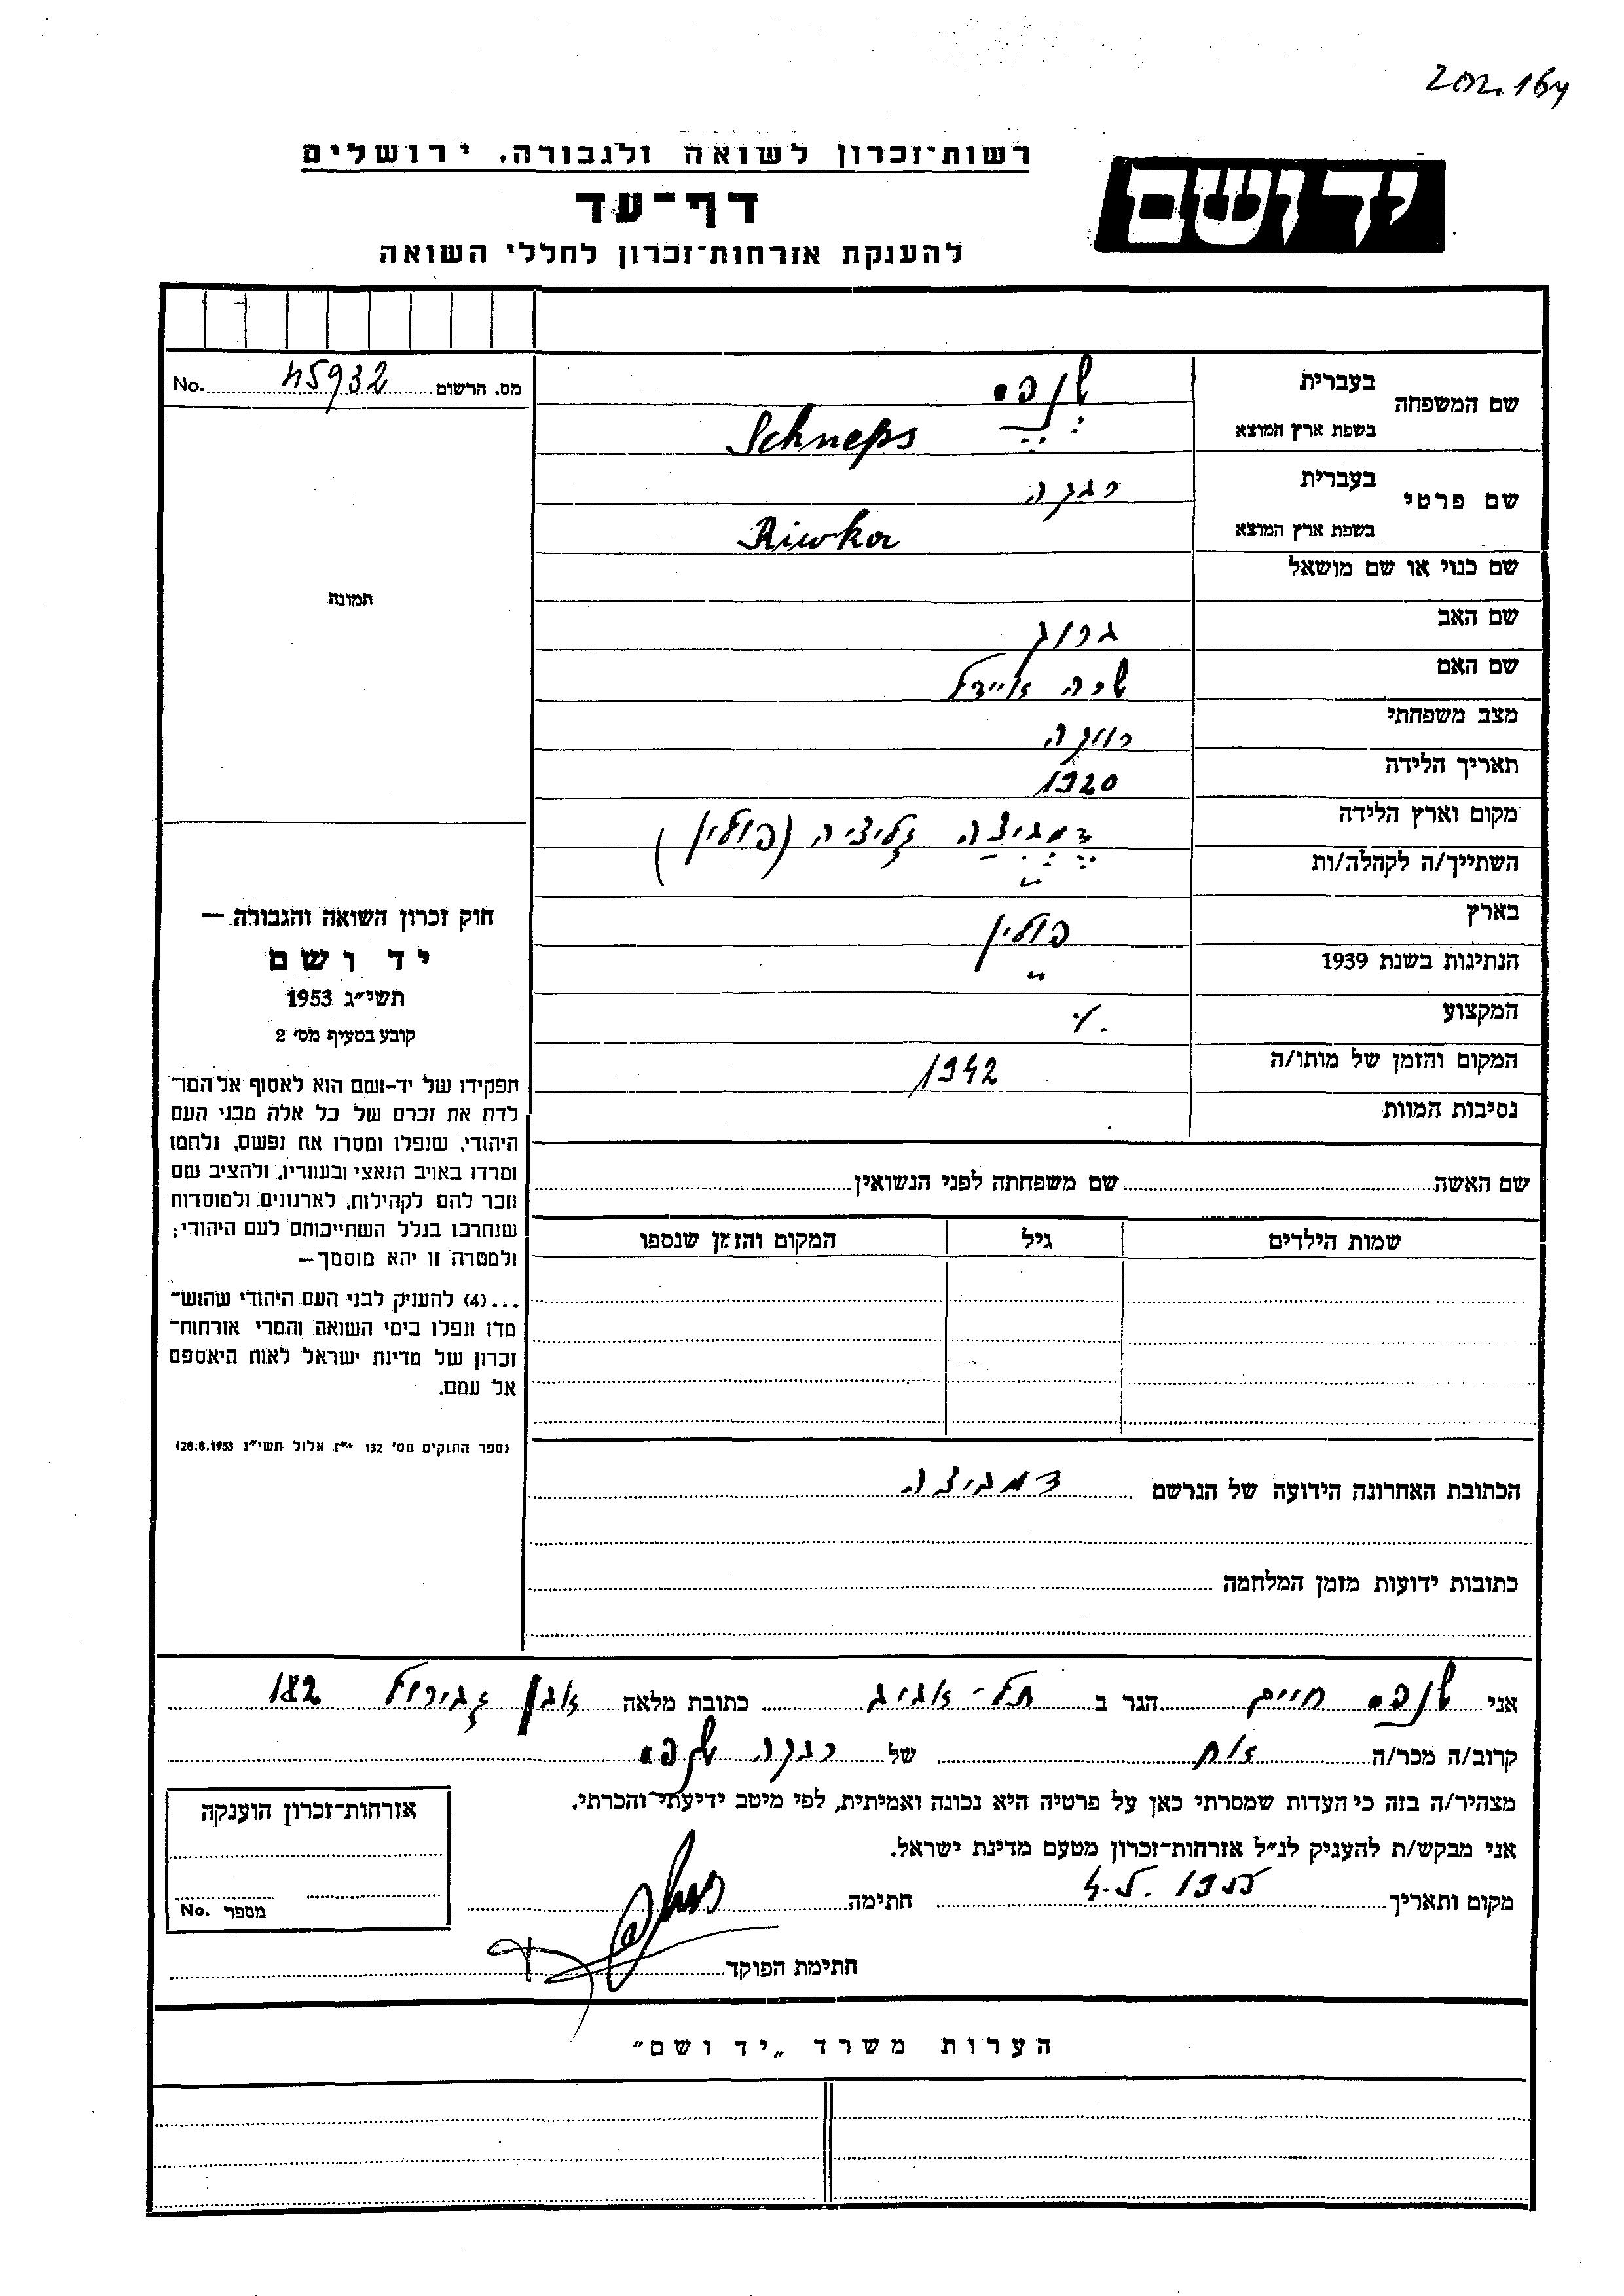 202.164
רשות־זכרון לשואה ולגבורה, ירושלים
יד ושם
דף־עד
להענקת אזרחות־זכרון לחללי השואה
מס. הרשום 45932 No.
שם המשפחה
בעברית שנפס
בשפת ארץ המוצא Schneps
שם פרטי
בעברית רבקה
בשפת ארץ המוצא Riwka
שם כנוי או שם מושאל
שם האב ברוך
שם האם שרה איידל
מצב משפחתי רווקה
תאריך הלידה 1920
מקום וארץ הלידה דמביצה גליציה (פולין)
השתייך/ה לקהלה/ות "
בארץ פולין
הנתינות בשנת 1939 "
המקצוע ./.
המקום והזמן של מותו/ה 1942
נסיבות המוות
תמונה
חוק זכרון השואה והגבורה —
יד ושם
תשי״ג 1953
קובע בסעיף מס׳ 2
תפקידו של יד-ושם הוא לאסוף אל המו־
לדת את זכרם של כל אלה מבני העם
היהודי, שנפלו ומסרו את נפשם, נלחמו
ומרדו באויב הנאצי ובעוזריו, ולהציב שם
וזכר להם לקהילות, לארגונים ולמוסדות
שנחרבו בגלל השתייכותם לעם היהודי;
ולמטרה זו יהא מוסמך—
...(4) להעניק לבני העם היהודי שהוש־
מדו ונפלו בימי השואה והמרי אזרחות־
זכרון של מדינת ישראל לאות היאספם
אל עמם.
(ספר החוקים מס׳ 132 י״ז אלול תשי״ג 28.8.1953)
שם האשה שם משפחתה לפני הנשואין
שמות הילדים גיל המקום והזמן שנספו
הכתובת האחרונה הידועה של הנרשם דמביצה
כתובות ידועות מזמן המלחמה
אני שנפס חיים הגר ב תל-אביב כתובת מלאה אבן גבירול 182
קרוב/ה מכר/ה אח של רבקה שנפס
מצהיר/ה בזה כי העדות שמסרתי כאן על פרטיה היא נכונה ואמיתית, לפי מיטב ידיעתי והכרתי.
אני מבקש/ת להעניק לנ״ל אזרחות־זכרון מטעם מדינת ישראל.
מקום ותאריך 4.5.1955 חתימה
חתימת הפוקד
אזרחות־זכרון הוענקה
מספר No.
הערות משרד „יד ושם״